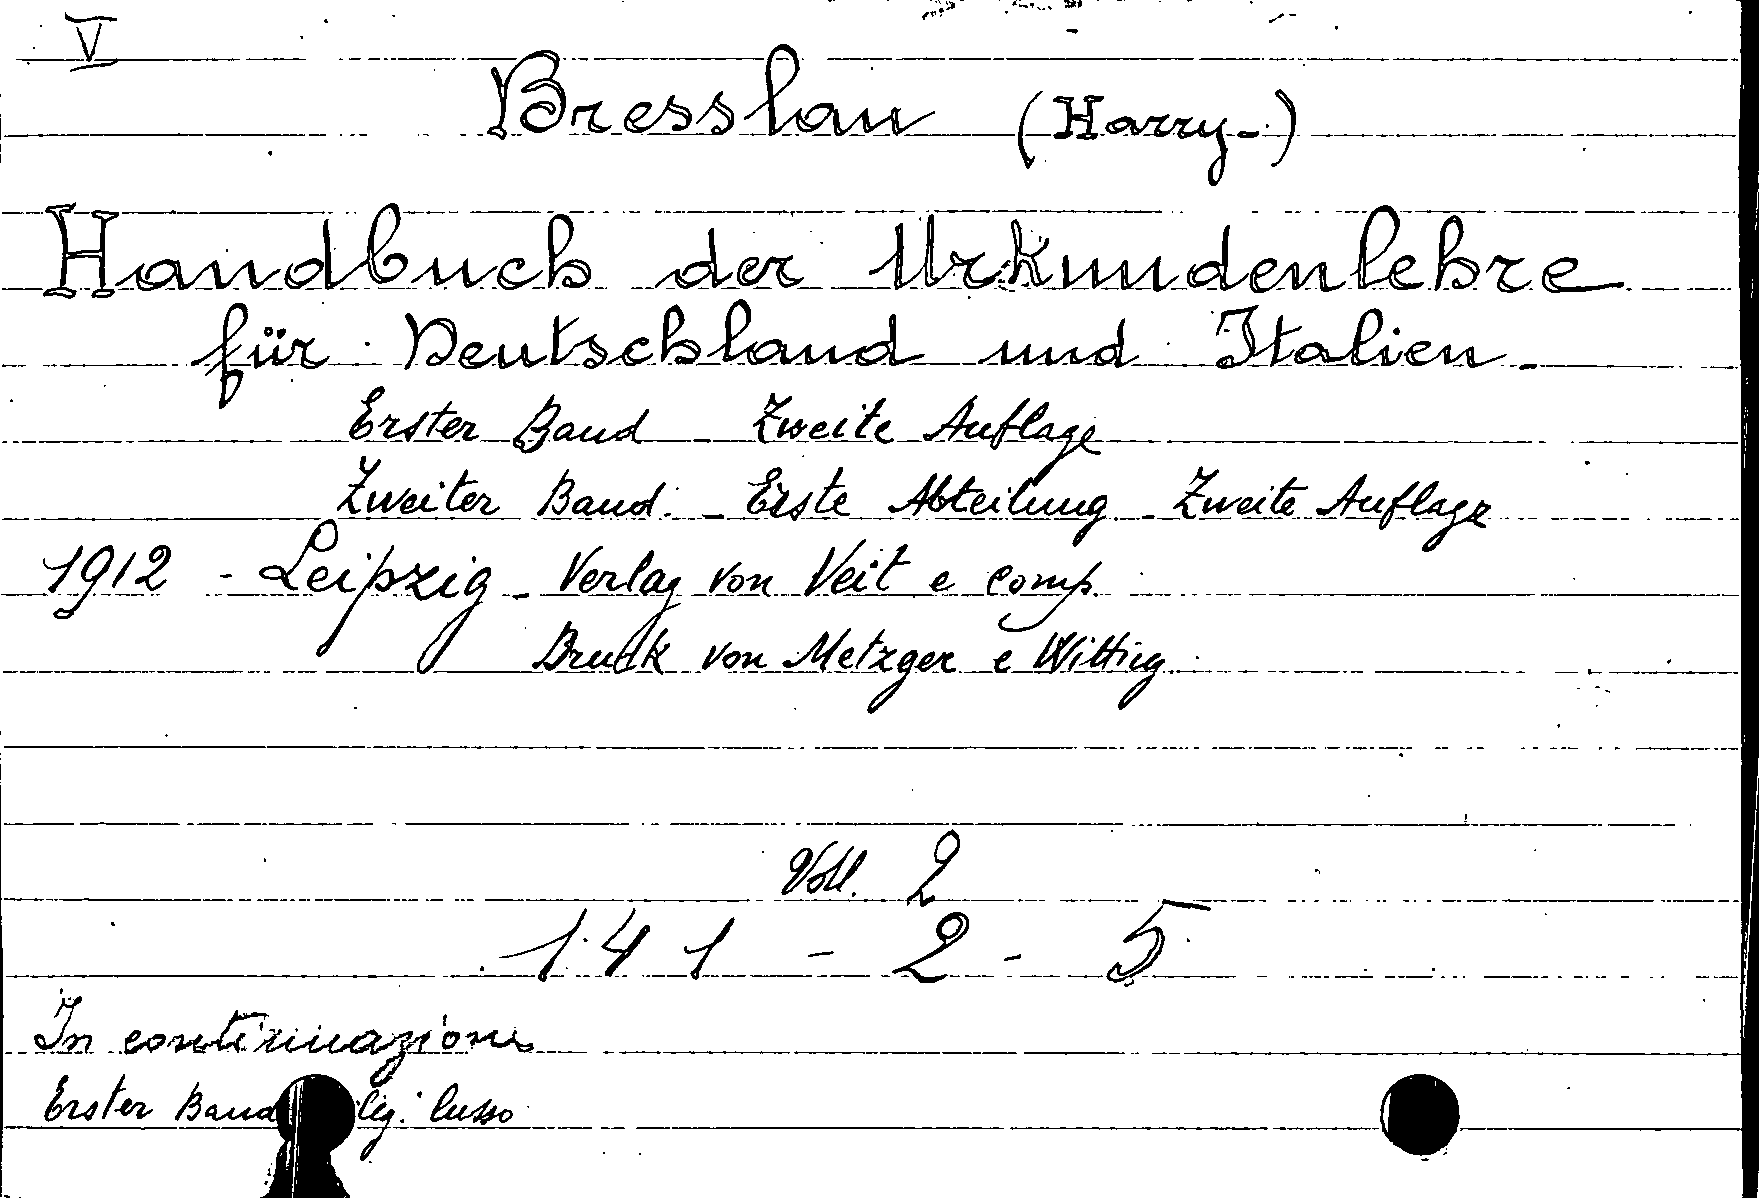 V
Bresslau (Harry-)
Handbuch der Urkundenlehre
für Deutschland und Italien-
Erster Band - Zweite Auflage
Zweiter Band. - Erste Abteilung - Zweite Auflage
1912 - Leipzig - Verlag von Veit e Comp.
Druck von Metzger e Wittig
Voll. 2
141 - 2 - 5
In continuazione
Erster Band leg. lusso